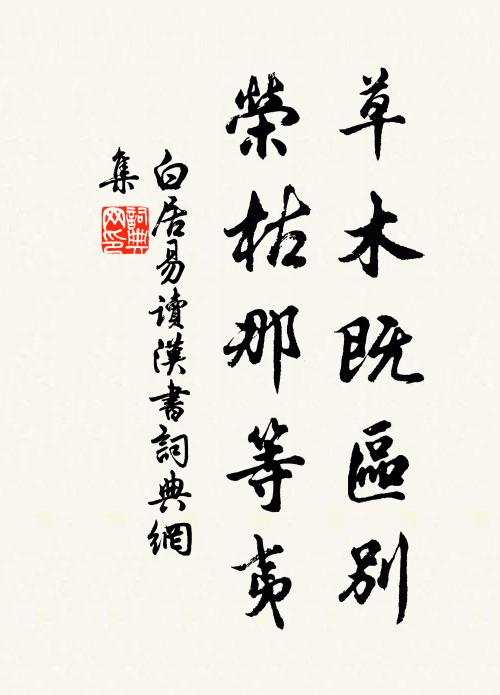 草木既區別
榮枯那等夷
白居易讀漢書詞典網
集
詞典网印